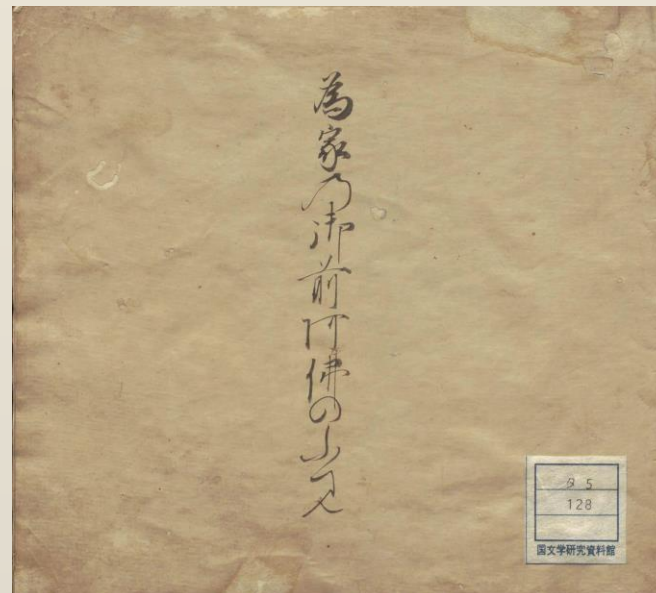 為家乃御前阿佛のふみ
タ 5
128
国文学研究資料館